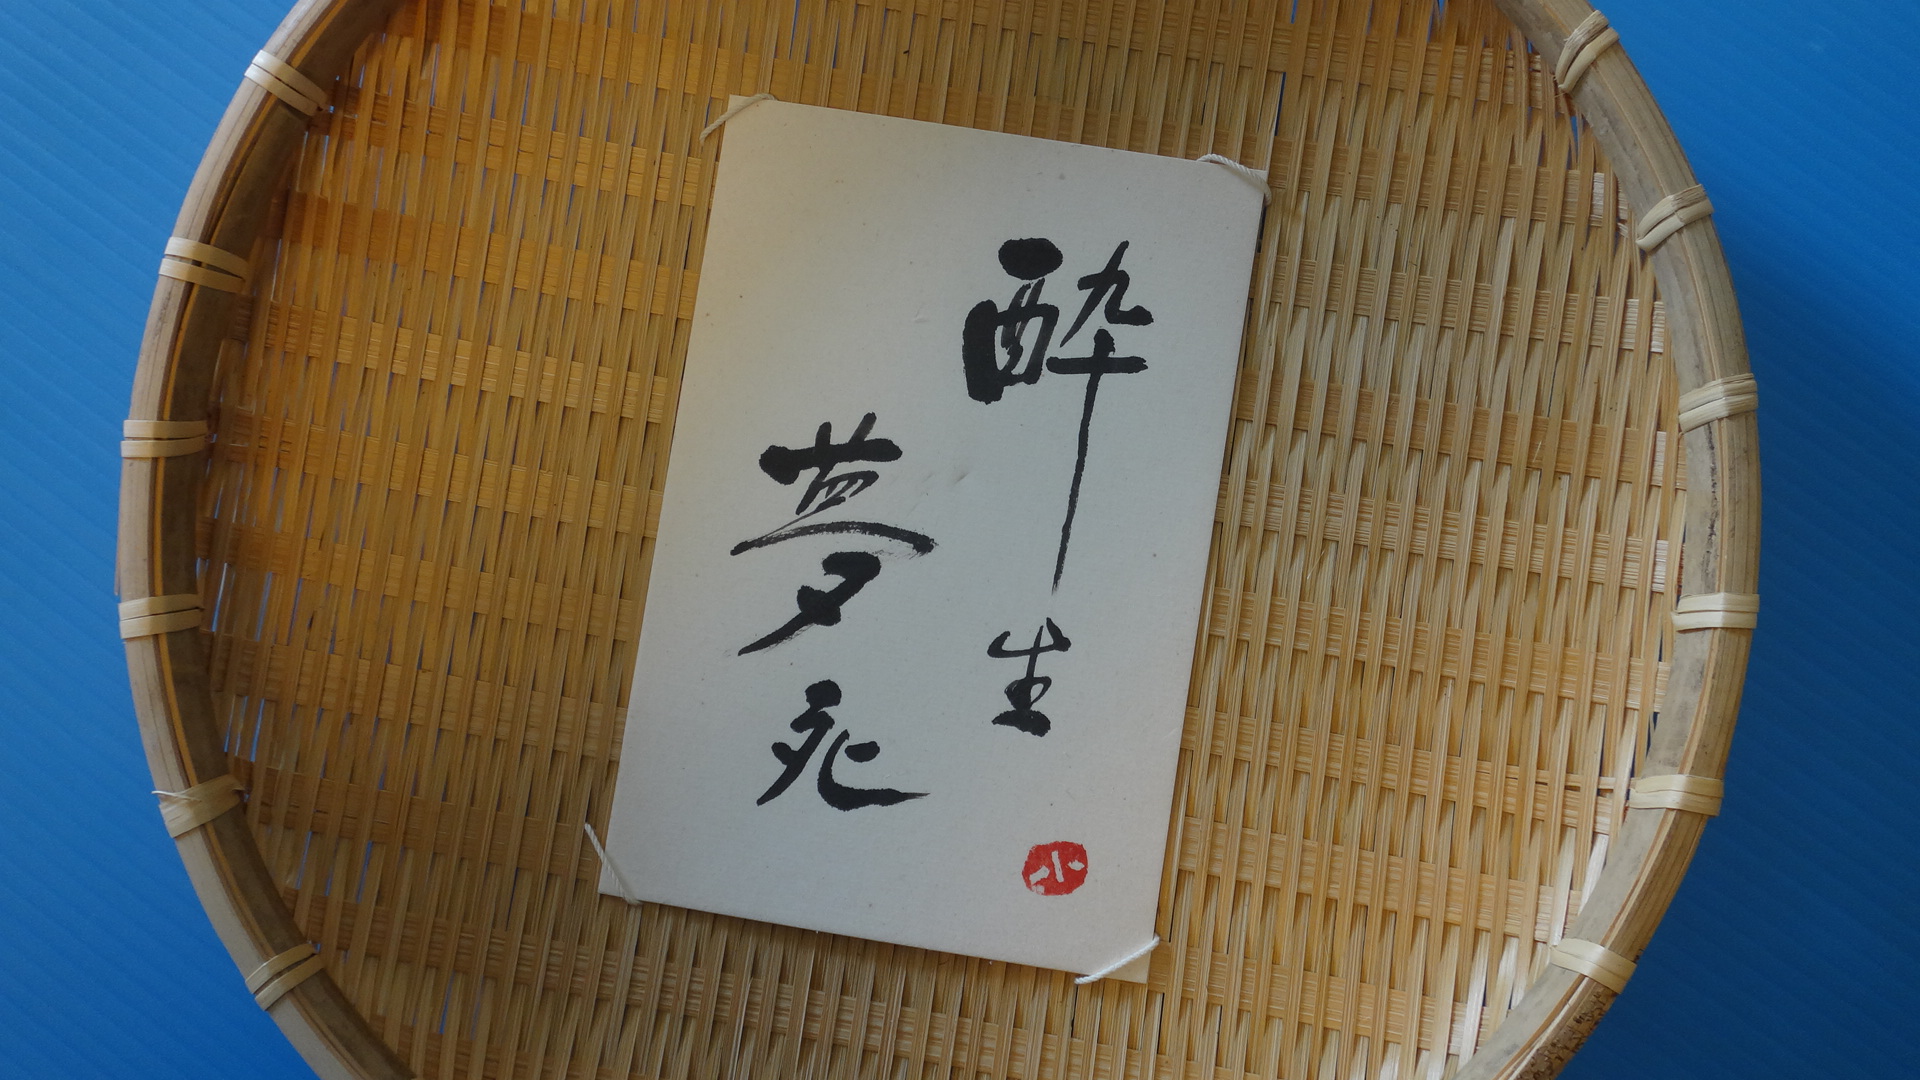 酔生
夢死
小